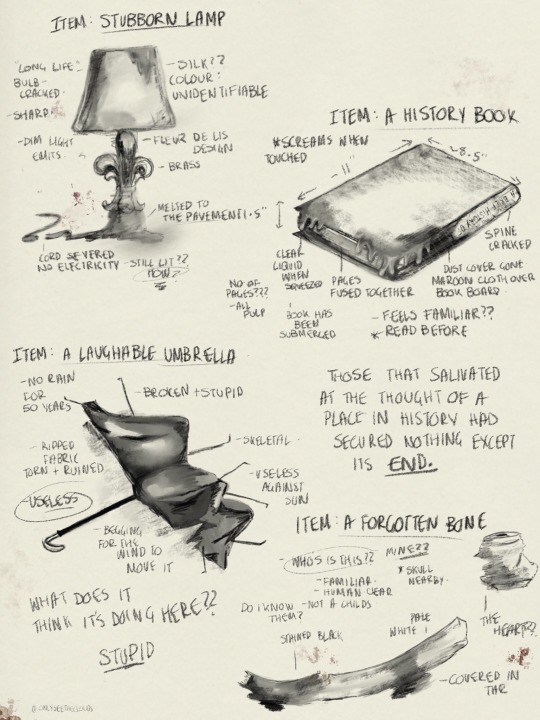 ITEM: STUBBORN LAMP
"LONG LIFE"
BULB-
CRACKED.
-SHARP
-DIM LIGHT
EMITS.
-SILK??
COLOUR:
UNIDENTIFIABLE
-FLEUR DE LIS
DESIGN
-BRASS
MELTED TO
THE PAVEMENT
CORD SEVERED
NO ELECTRICITY
-STILL LIT??
HOW?
ITEM: A HISTORY BOOK
*SCREAMS WHEN
TOUCHED
11"
~8.5"
1.5"
SPINE
CRACKED
CLEAR
LIQUID
WHEN
SQUEEZED
PAGES
FUSED TOGETHER
DUST COVER GONE
MAROON CLOTH OVER
BOOK BOARD.
NO OF
PAGES???
-ALL
PULP
BOOK HAS
BEEN
SUBMERGED
-FEELS FAMILIAR??
*READ BEFORE
ITEM: A LAUGHABLE UMBRELLA
-NO RAIN
FOR
50 YEARS
-BROKEN + STUPID
-RIPPED
FABRIC
TORN + RUINED
-SKELETAL.
-USELESS
-USELESS
AGAINST
SUN
-BEGGING
FOR THE
WIND TO
MOVE IT
WHAT DOES IT
THINK IT'S DOING HERE??
STUPID
THOSE THAT SALIVATED
AT THE THOUGHT OF A
PLACE IN HISTORY HAD
SECURED NOTHING EXCEPT
ITS END.
ITEM: A FORGOTTEN BONE
-WHO'S IS THIS??
MINE??
*SKULL
NEARBY.
-FAMILIAR.
-HUMAN CLEAR
-NOT A CHILDS
DO I KNOW
THEM?
STAINED BLACK
PALE
WHITE
THE
HEART??
-COVERED IN
TAR